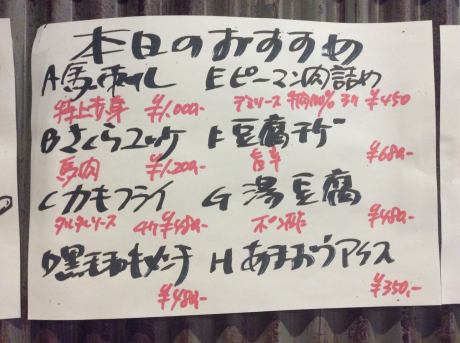 本日のおすすめ
A馬刺し
特上赤身 ¥1,000-
Bさくらユッケ
馬肉 ¥1,200-
Cカキフライ
タルタルソース 4ケ ¥480-
D黒毛和牛メンチ
¥480-
Eピーマン肉詰め
デミソース 牛肉100% 3ケ ¥450
F豆腐チゲ
旨辛 ¥680-
G湯豆腐
ポン酢 ¥480-
Hあまおうアイス
¥350,-